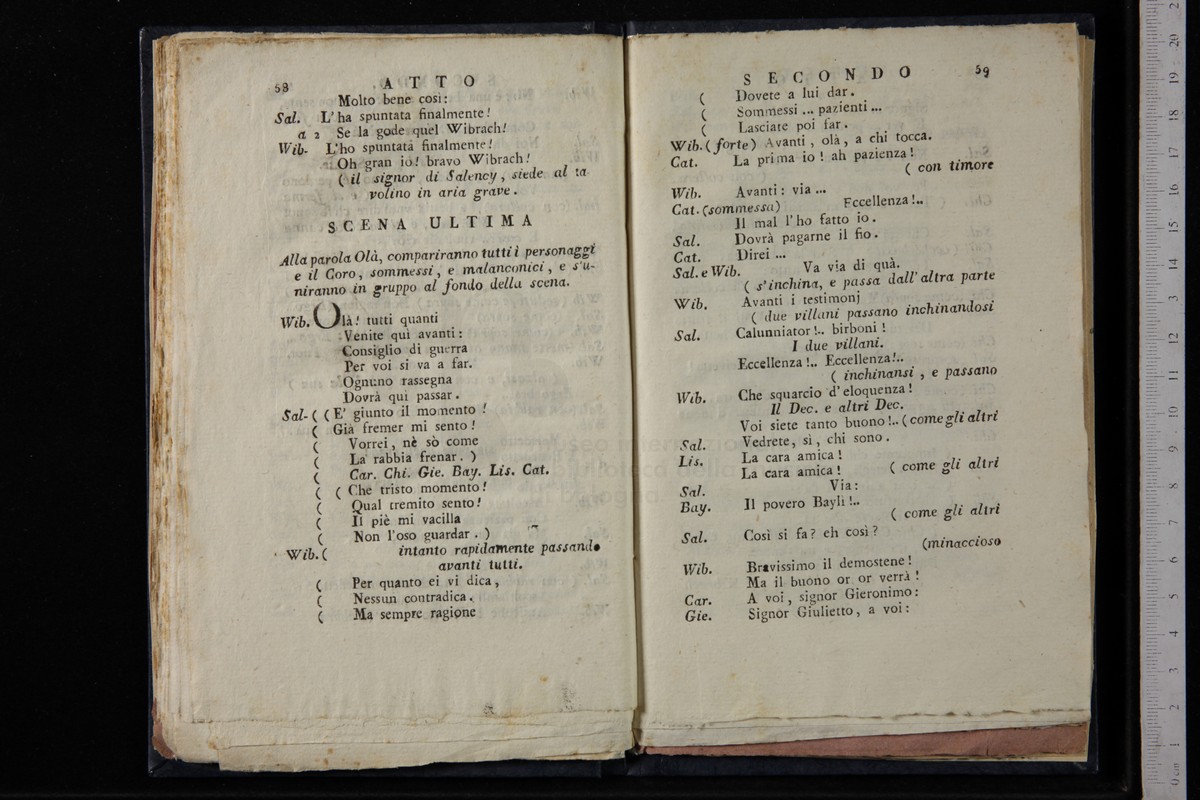 58 ATTO
Molto bene così:
Sal. L'ha spuntata finalmente!
a 2 Se la gode quel Wibrach!
Wib- L'ho spuntata finalmente!
Oh gran io! bravo Wibrach!
( il signor di Salency, siede al ta
volino in aria grave.
SCENA ULTIMA
Alla parola Olà, compariranno tutti i personaggi
e il Coro, sommessi, e malanconici, e s'u-
niranno in gruppo al fondo della scena.
Wib. Olà! tutti quanti
Venite quì avanti:
Consiglio di guerra
Per voi si va a far.
Ognuno rassegna
Dovrà qui passar.
Sal- ( ( E' giunto il momento!
( Già fremer mi sento!
( Vorrei, nè sò come
( La rabbia frenar. )
( Car. Chi. Gie. Bay. Lis. Cat.
( ( Che tristo momento!
( Qual tremito sento!
( Il piè mi vacilla
( Non l'oso guardar. )
Wib. ( intanto rapidamente passando
avanti tutti.
( Per quanto ei vi dica,
( Nessun contradica.
( Ma sempre ragione
SECONDO 59
( Dovete a lui dar.
( Sommessi ... pazienti ...
( Lasciate poi far.
Wib. ( forte) Avanti, olà, a chi tocca.
Cat. La prima io! ah pazienza!
( con timore
Wib. Avanti: via ...
Cat. (sommessa) Eccellenza!..
Il mal l'ho fatto io.
Sal. Dovrà pagarne il fio.
Cat. Direi ...
Sal. e Wib. Va via di quà.
( s'inchina, e passa dall'altra parte
Wib. Avanti i testimonj
( due villani passano inchinandosi
Sal. Calunniator!.. birboni!
I due villani.
Eccellenza!.. Eccellenza!..
( inchinansi, e passano
Wib. Che squarcio d'eloquenza!
Il Dec. e altri Dec.
Voi siete tanto buono!.. ( come gli altri
Sal. Vedrete, sì, chi sono.
Lis. La cara amica!
La cara amica! ( come gli altri
Sal. Via:
Bay. Il povero Bayli!..
( come gli altri
Sal. Così si fa? eh così?
(minaccioso
Wib. Bravissimo il demostene!
Ma il buono or or verrà!
Car. A voi, signor Gieronimo:
Gie. Signor Giulietto, a voi: